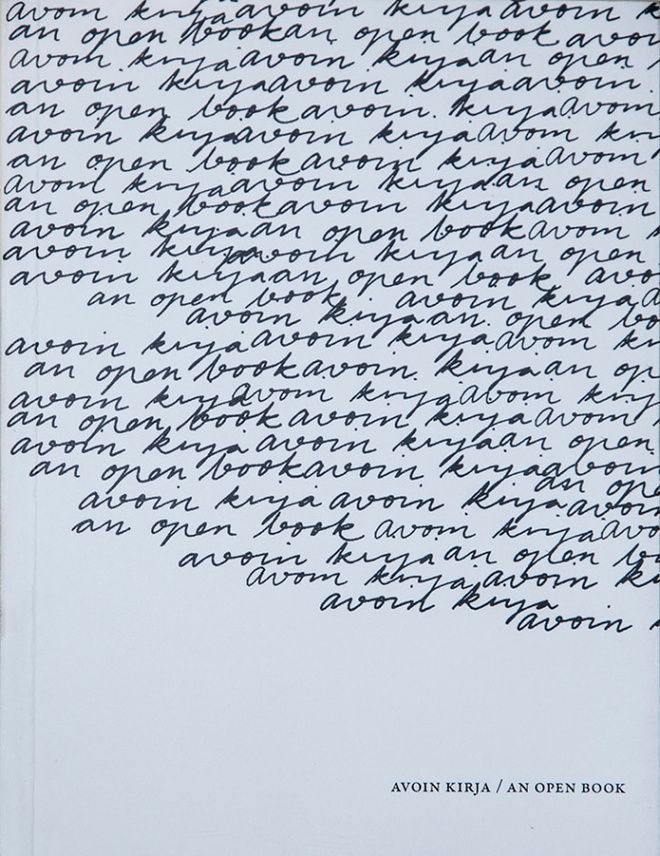 avoin kirjaavoin kirjaavoin k
an open bookan open book avoi
avoin kirjaavoin kirjaan open
avoin kirjaavoin kirjaavoin
an open bookavoin kirjaavoin
avoin kirjaavoin kirjaavoin kir
an open bookavoin kirjaavoin
avoin kirjaavoin kirjaan open
an open bookavoin kirjaavoin
avoin kirjaan open bookavoin k
avoin kirjaavoin kirjaan open
avoin kirjaan open book avo
an open book avoin kirjaa
avoin kirjaan open bo
avoin kirjaavoin kirjaavoin ki
an open bookavoin kirjaan op
avoin kirjaavoin kirjaavoin kirj
an open bookavoin kirjaavoin
avoin kirjaavoin kirjaan open
an open bookavoin kirjaavoin
an ope
avoin kirjaavoin kirjaavoin
an open book avoin kirjaavo
avoin kirjaan open b
avoin kirjaavoin ki
avoin kirja
avoin k
AVOIN KIRJA / AN OPEN BOOK